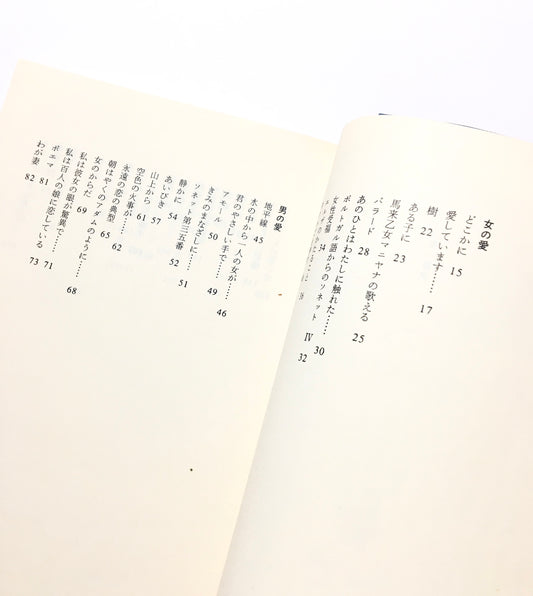 女の愛
どこかに 15
愛しています…… 17
樹 22
ある子に 23
馬来乙女マニヤナの歌える 25
バラード 28
あのひとはわたしに触れた…… 30
ポルトガル語からのソネット Ⅳ 32
女性受胎 34
男の愛
地平線 45
水の中から一人の女が…… 46
君のやさしい手で…… 49
アモール 50
きみのまなざしに…… 51
ソネット第三五番 52
静かに 54
あいびき 57
山上から 61
空色の火事が…… 62
永遠の恋の典型 65
朝はやくのアダムのように…… 68
女のからだ 69
私は彼女の眼が驚異で…… 71
私は百人の娘に恋している 73
ポエマ 81
わが妻 82